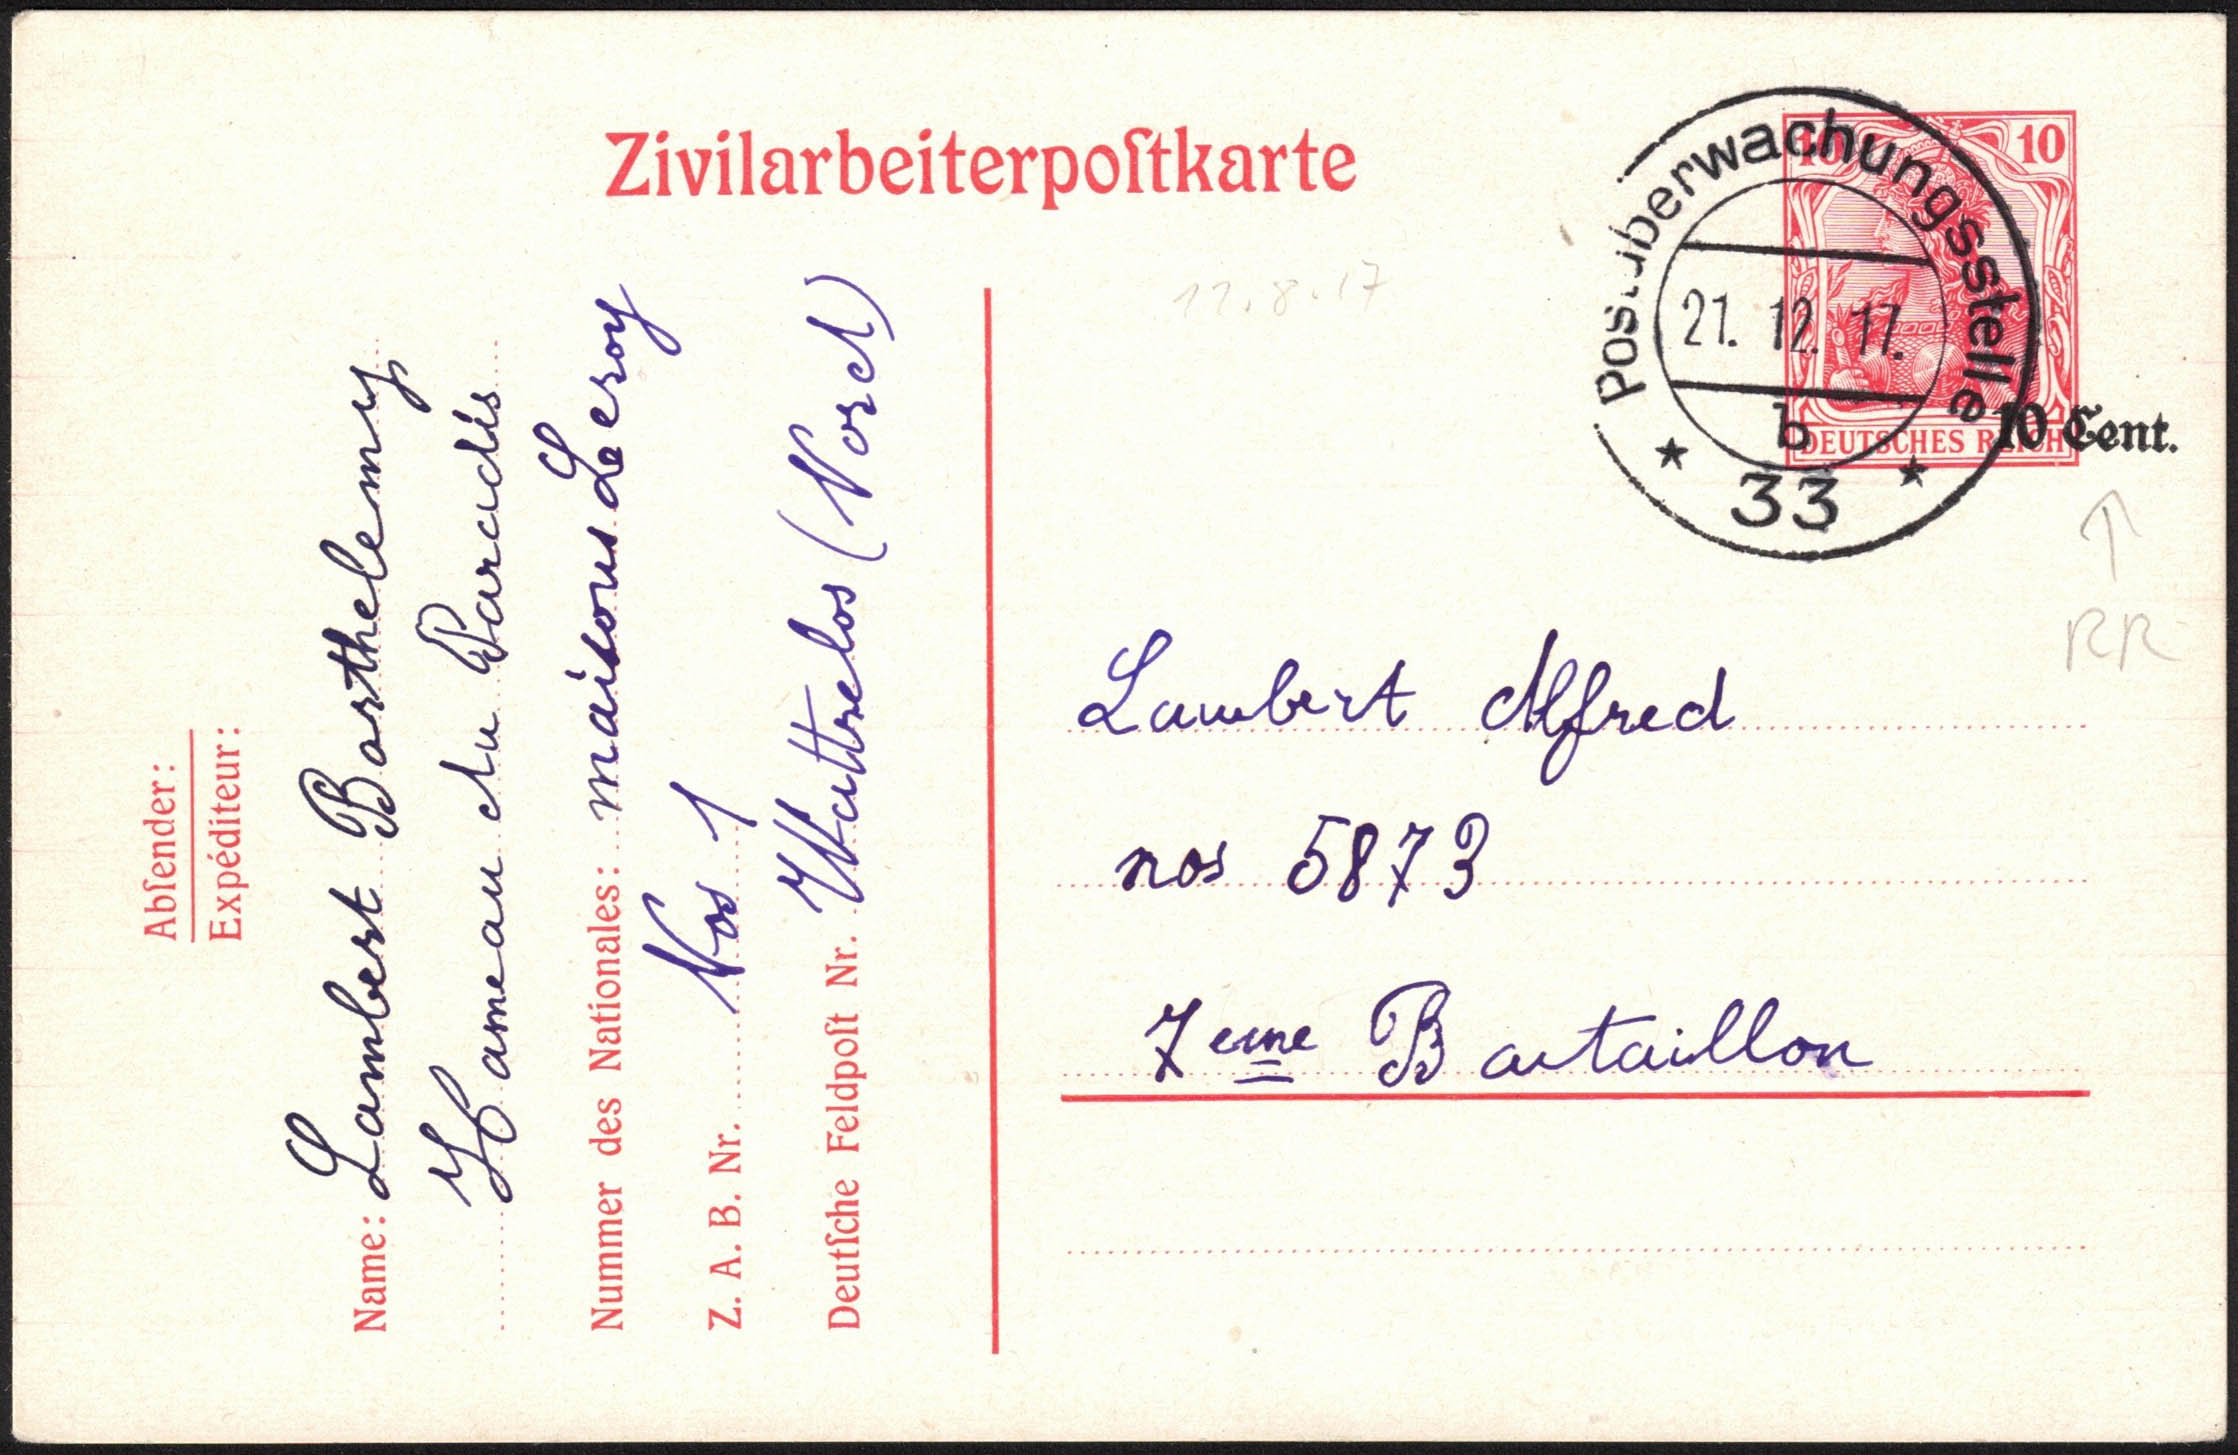 Zivilarbeiterpoſtkarte
Abſender:
Expéditeur:
Name: Lambert Barthelemy
Hameau du Paradis
Nummer des Nationales: maisons Leroy
Z. A. B. Nr. Nos 1
Deutſche Feldpoſt Nr. Wattrelos (Nord)
11.8.17
10 10
DEUTSCHES REICH
10 Cent.
Postüberwachungsstelle
21. 12. 17.
b
* 33 *
RR
Lambert Alfred
nos 5873
7eme Bataillon